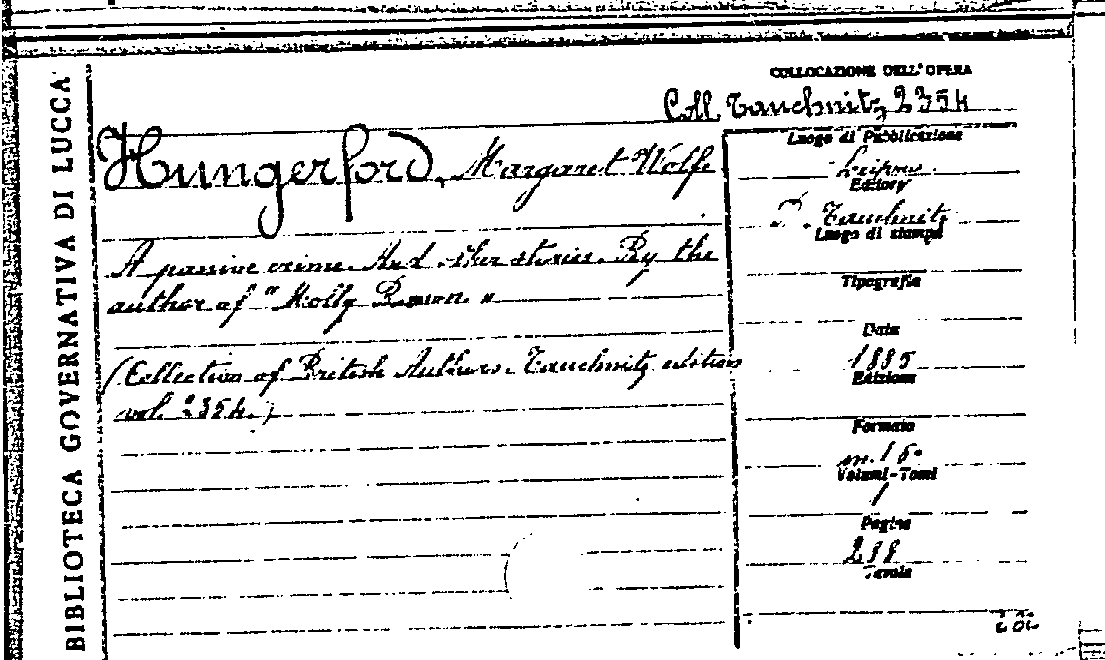 BIBLIOTECA GOVERNATIVA DI LUCCA
COLLOCAZIONE DELL'OPERA
Coll. Tauchnitz 2354
Hungerford, Margaret Wolfe
A passive crime. And other stories. By the
author of "Molly Bawn."
(Collection of British Authors. Tauchnitz edition
vol. 2354.)
Luogo di Pubblicazione
Editory
B. Tauchnitz
Luogo di stampa
Tipografia
Data
1885
Edizione
Formato
m. 16°
Volumi-Tomi
1
Pagine
288
Tavole